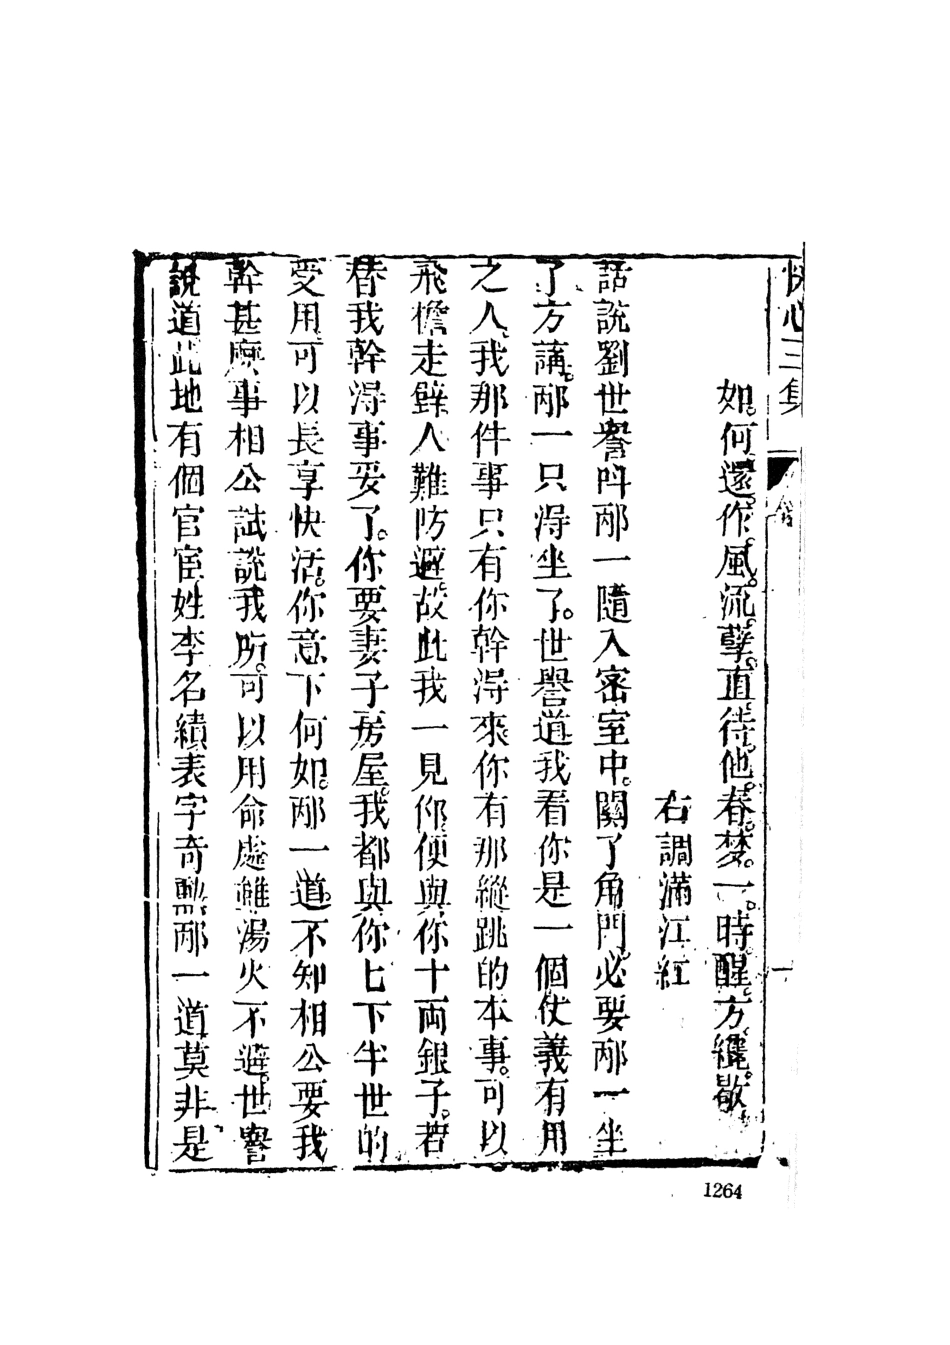 快心三集
如何還作風流孽。直待他。春夢。一時醒。方纔歇。
右調滿江紅
話說劉世譽呌邴一隨入密室中。關了角門。必要邴一坐
了方講。邴一只得坐了。世譽道我看你是一個仗義有用
之人。我那件事只有你幹得來你有那縱跳的本事。可以
飛檐走壁人難防避。故此我一見你便與你十両銀子。若
替我幹得事妥了。你要妻子房屋。我都與你。你下半世的
受用。可以長享快活。你意下何如。邴一道。不知相公要我
幹甚麽事相公試說我听。可以用命處雖湯火不避。世譽
說道此地有個官宦姓李名績表字奇勲邴一道莫非是
1264